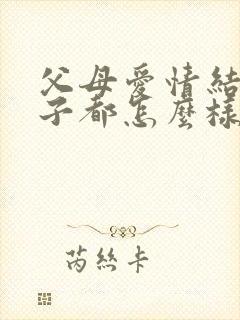 父母愛情結
子都怎麼樣
芮絲卡